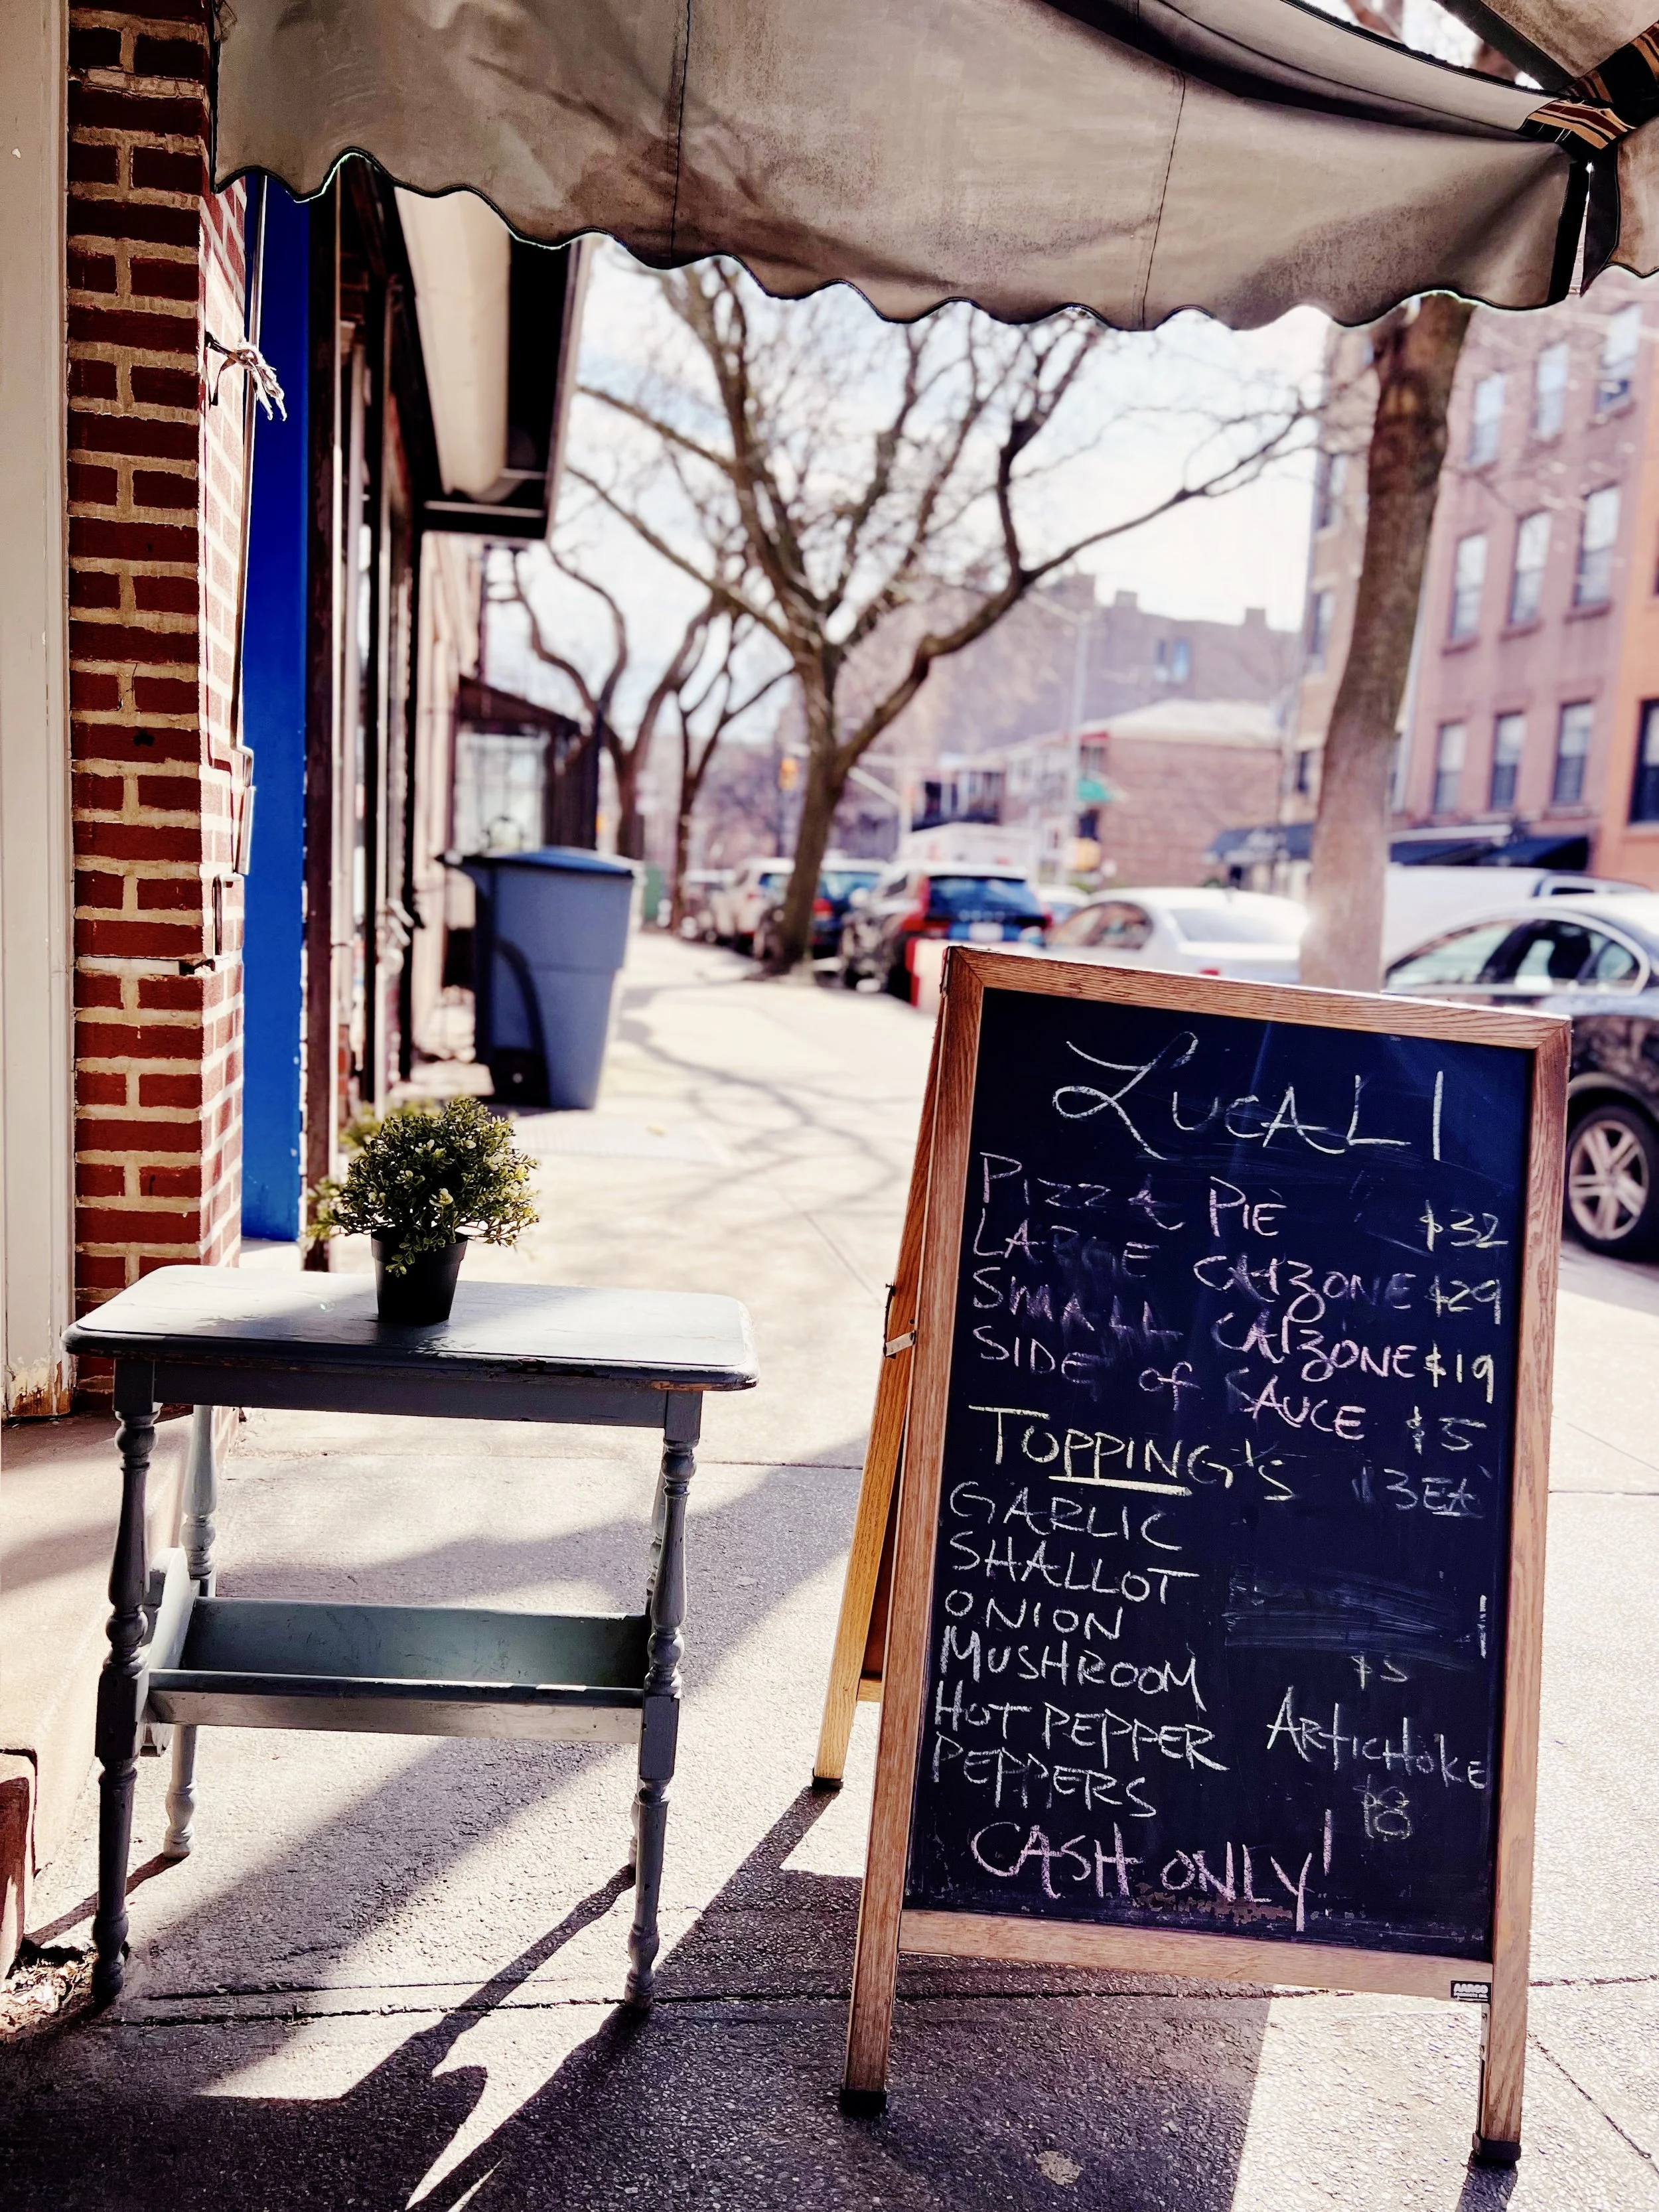 LUCALI
PIZZA PIE $32
LARGE CALZONE $29
SMALL CALZONE $19
SIDE of SAUCE $5
TOPPING'S $3EA
GARLIC
SHALLOT
ONION
MUSHROOM
$5
HOT PEPPER
ARTICHOKE
PEPPERS
$8
CASH ONLY!